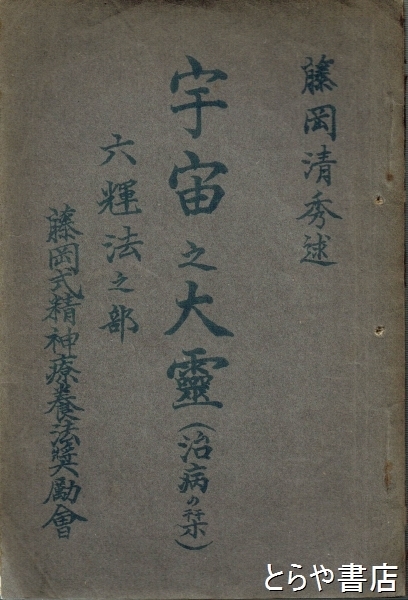 藤岡清秀述
宇宙之大靈(治病の栞)
六輝法之部
藤岡式精神療養法奬勵會
とらや書店